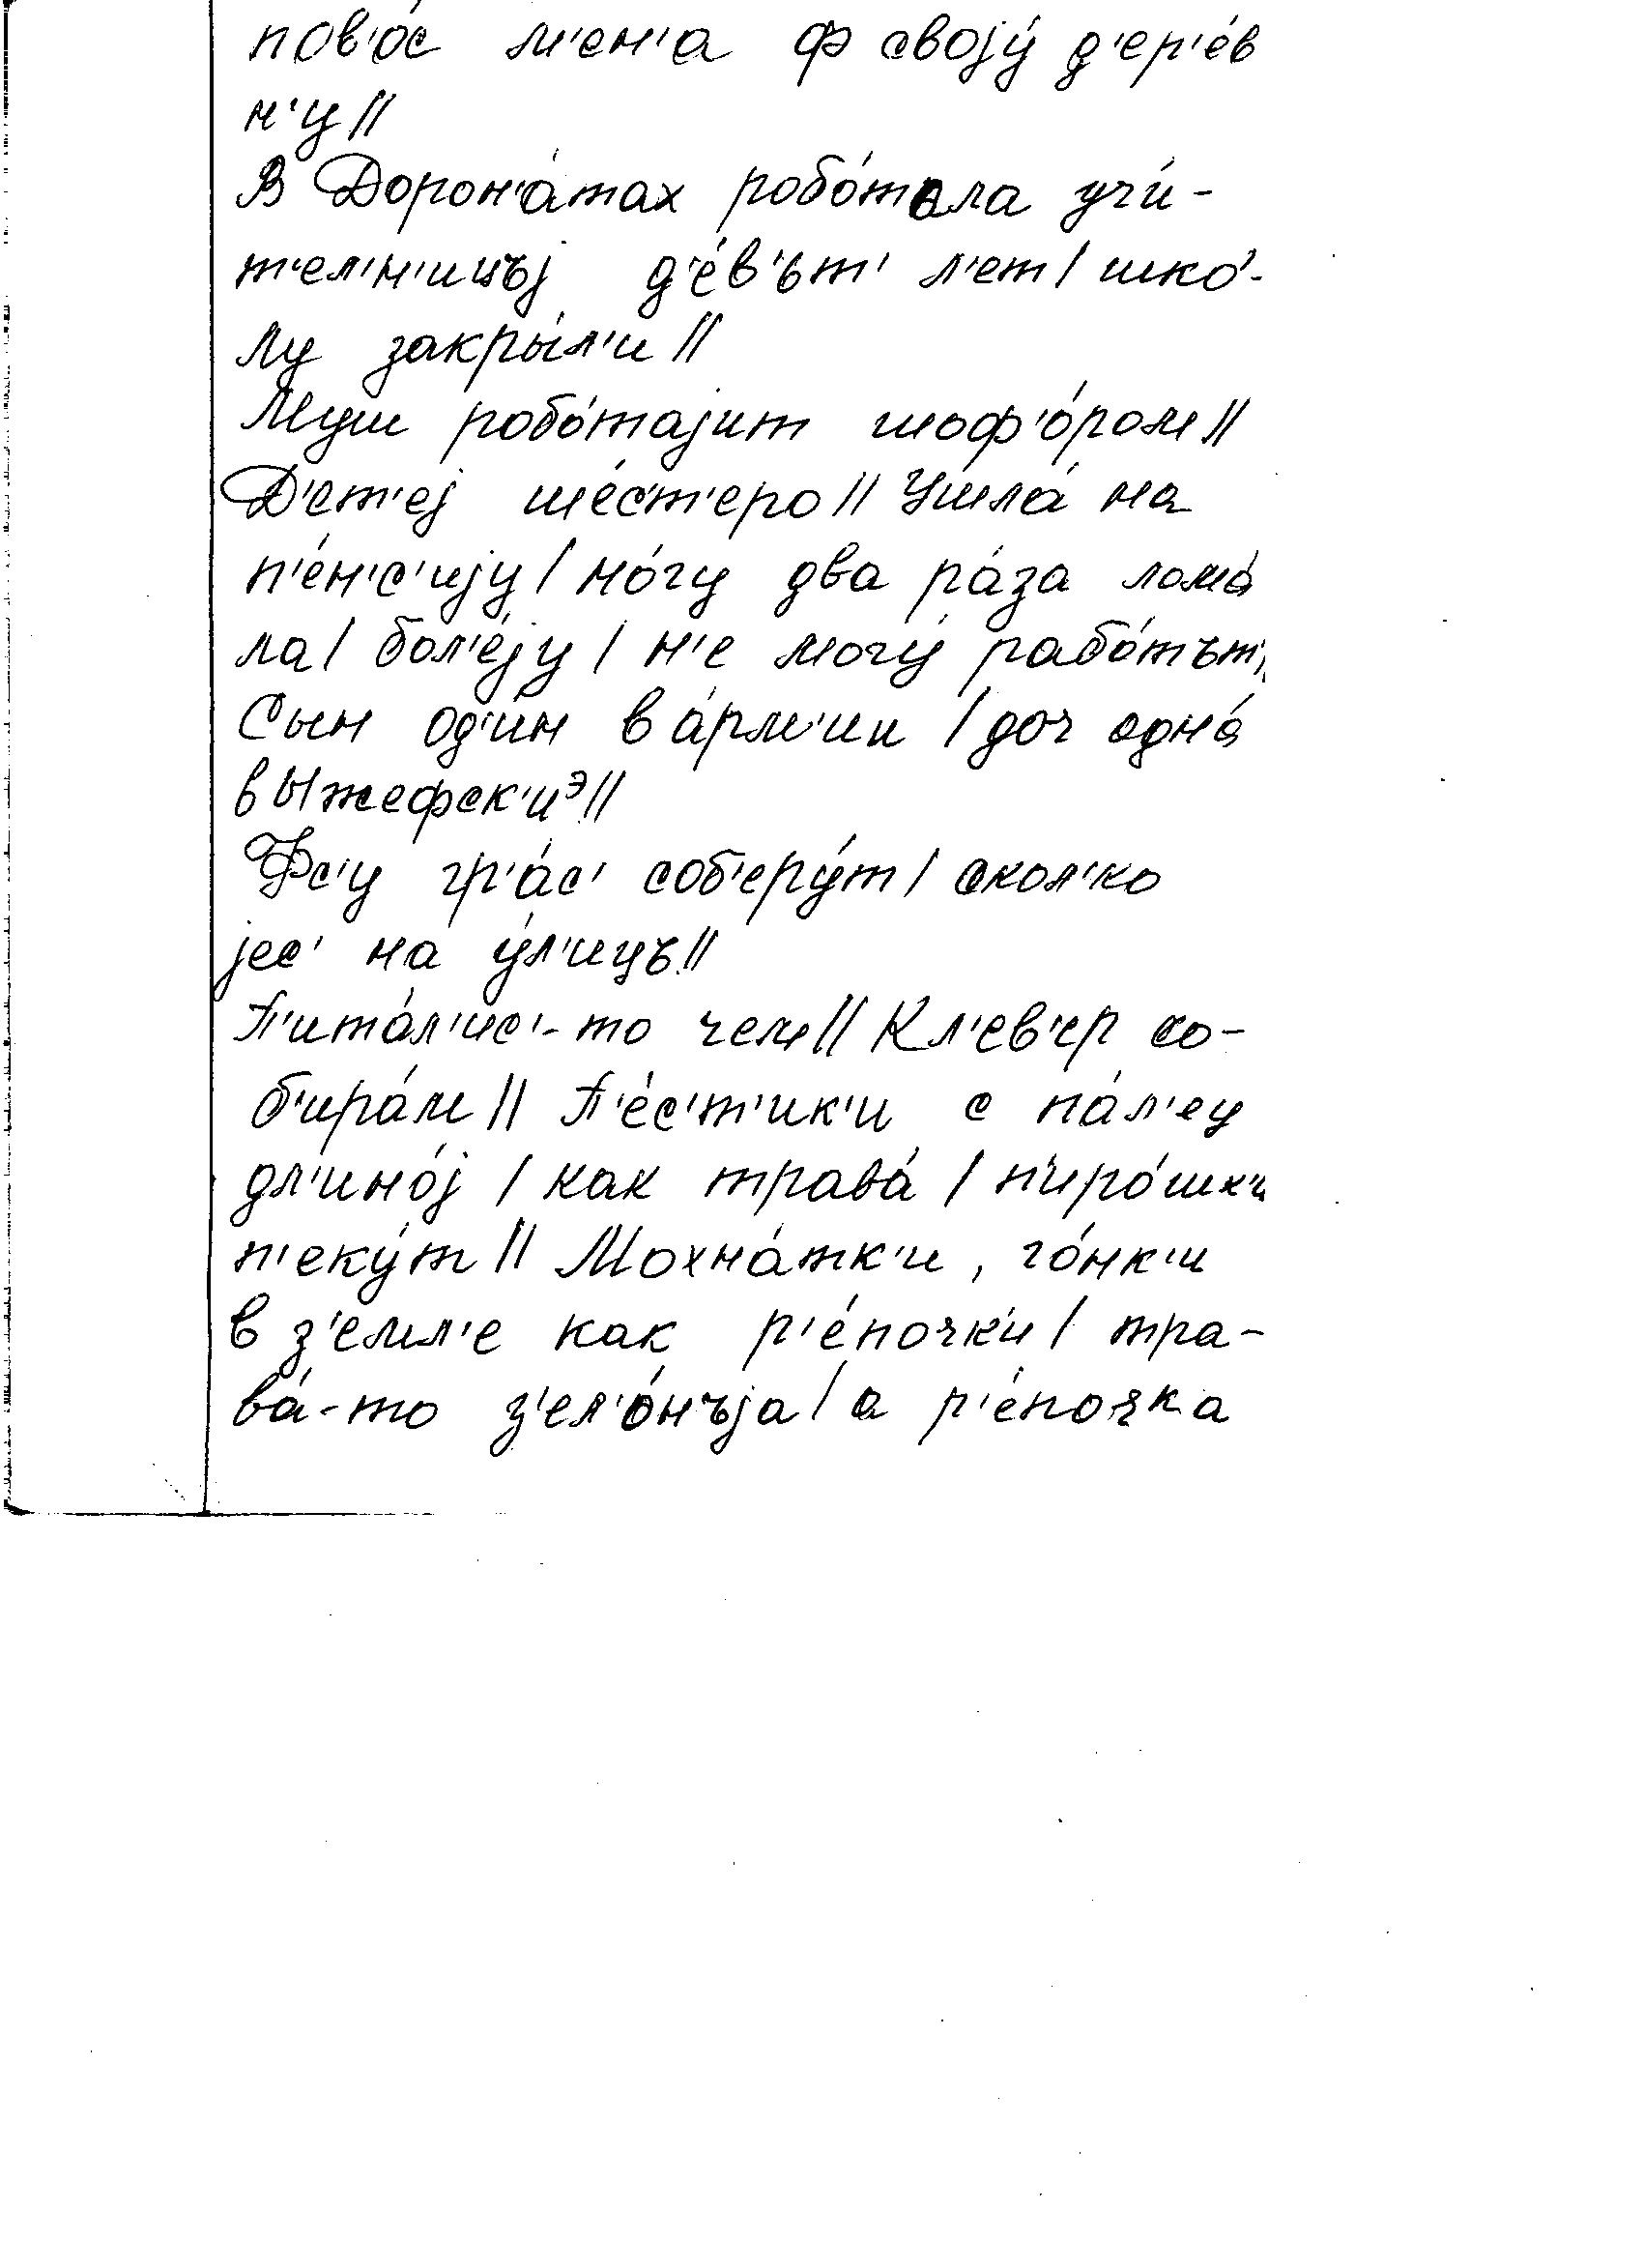 пов'о́с м'ен'а ф своjу́ д'ер'е́в
н'у //
В Дорон'а́тах робо́тала учи́-
т'ел'н'ицъj д'е́в'ьт' л'ет / шко́-
лу закры́л'и //
Муш робо́таjит шоф'о́ром //
Д'ет'еj ше́ст'еро // Ушла́ на
п'е́н'с'иjу / но́гу два ра́за лома́
ла / бол'е́jу / н'е могу́ рабо́тът'
Сын од'и́н в а́рм'ии / доч одна́
в Ыжефск'иᵊ //
Фс'у гр'а́с' соб'еру́т / скол'ко
jес' на у́л'ицъ //
П'ита́л'ис'-то чем // Кл'ев'ер со-
б'ира́м // П'е́с'т'ик'и с па́л'ец
дл'ино́j / как трава́ / п'иро́шк'и
п'еку́т // Мохна́тк'и, го́нк'и
в з'емл'е как р'е́почк'и / тра-
ва́-то з'ел'о́нъjа / а р'е́почка